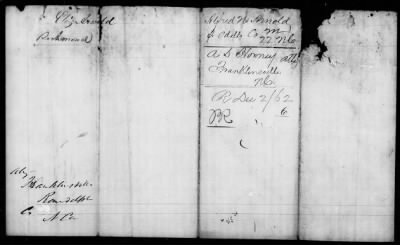 Arnold
Richmond
Alfred W Arnold
Co M
22 NC
A S Horney atty
Franklinsville
N.C.
R Dec 2/62
6
Atty
Franklinsville
Randolph
Co. N.C.